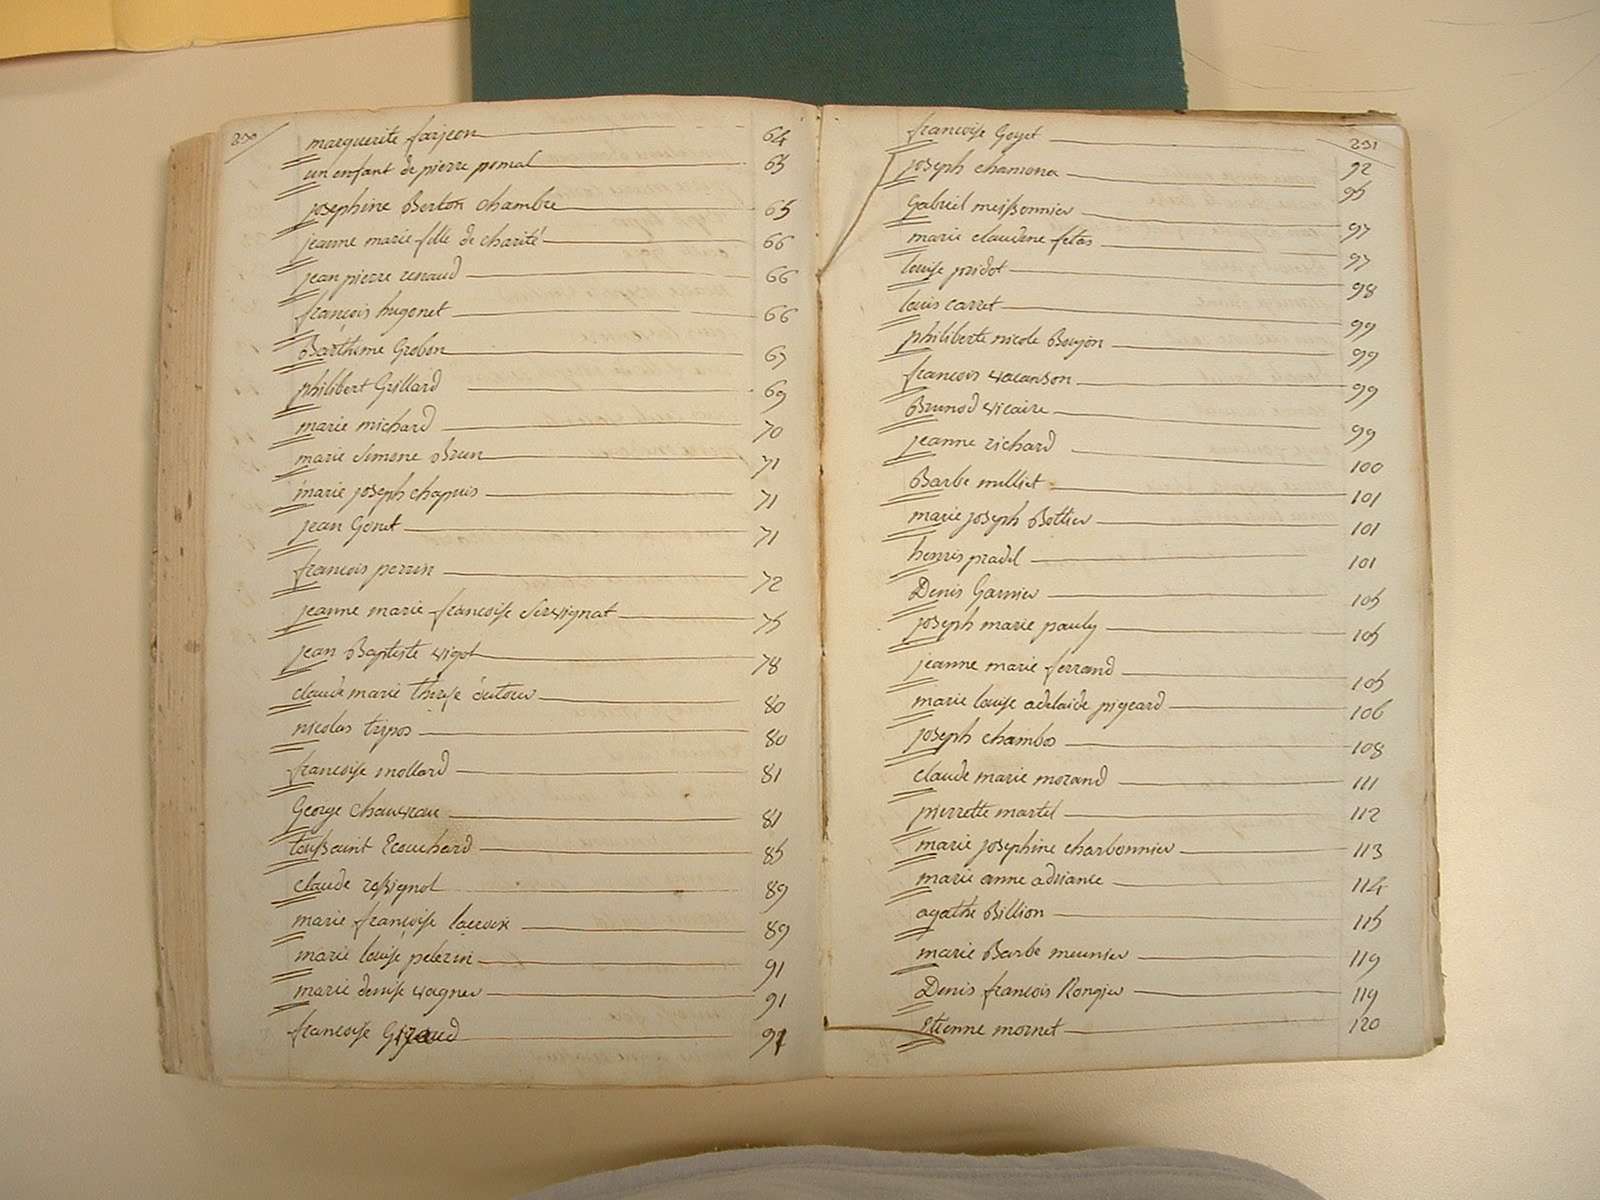 230
marguerite farjeon 64
un enfant de pierre pomal 65
josephine Berton chambre 65
jeanne marie fille de charité 66
jean pierre renaud 66
françois hugonet 66
Barthime Grobon 67
philibert Grillard 69
marie michard 70
marie simone Brun 71
marie joseph chapuis 71
jean Gonet 71
francois perrin 72
jeanne marie francoise servignat 75
jean Baptiste vigot 78
claude marie thirese dutour 80
nicolas tripos 80
francoise mollard 81
George chauveau 81
toussaint Ecouchard 85
claude rossignol 89
marie françoise lacroix 89
marie louise pelerin 91
marie denise vagner 91
francoise Giraud 91
231
francoise Goyet 92
joseph chamona 95
Gabriel meissonnier 97
marie claudine felas 97
louise pridot 98
louis carret 99
philiberte nicole Boujon 99
francois vacanson 99
Brunod vicaire 99
jeanne richard 100
Barbe milliet 101
marie joseph Bottier 101
henris pradel 101
Denis Garnier 105
joseph marie pauly 105
jeanne marie ferrand 105
marie louise adelaide pigeard 106
joseph chambos 108
claude marie morand 111
pierrette martel 112
marie josephine charbonnier 113
marie anne adriance 114
agathe Billion 115
marie Barbe meunier 119
Denis francois Rongier 119
Etienne mornet 120